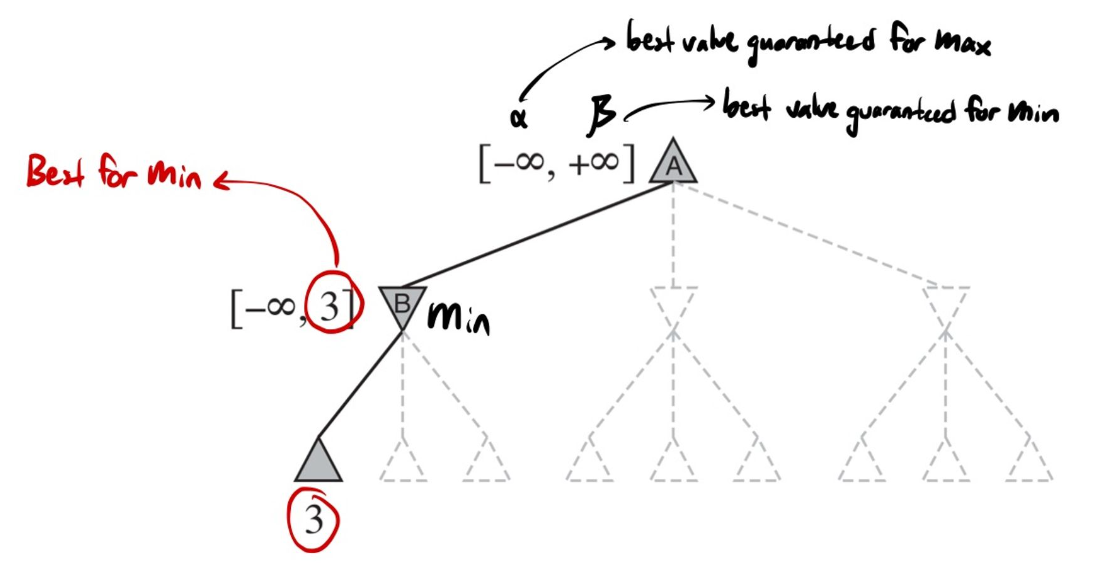 best value guaranteed for max
α β best value guaranteed for min
[−∞, +∞] A
Best for min
[−∞, 3] B min
3